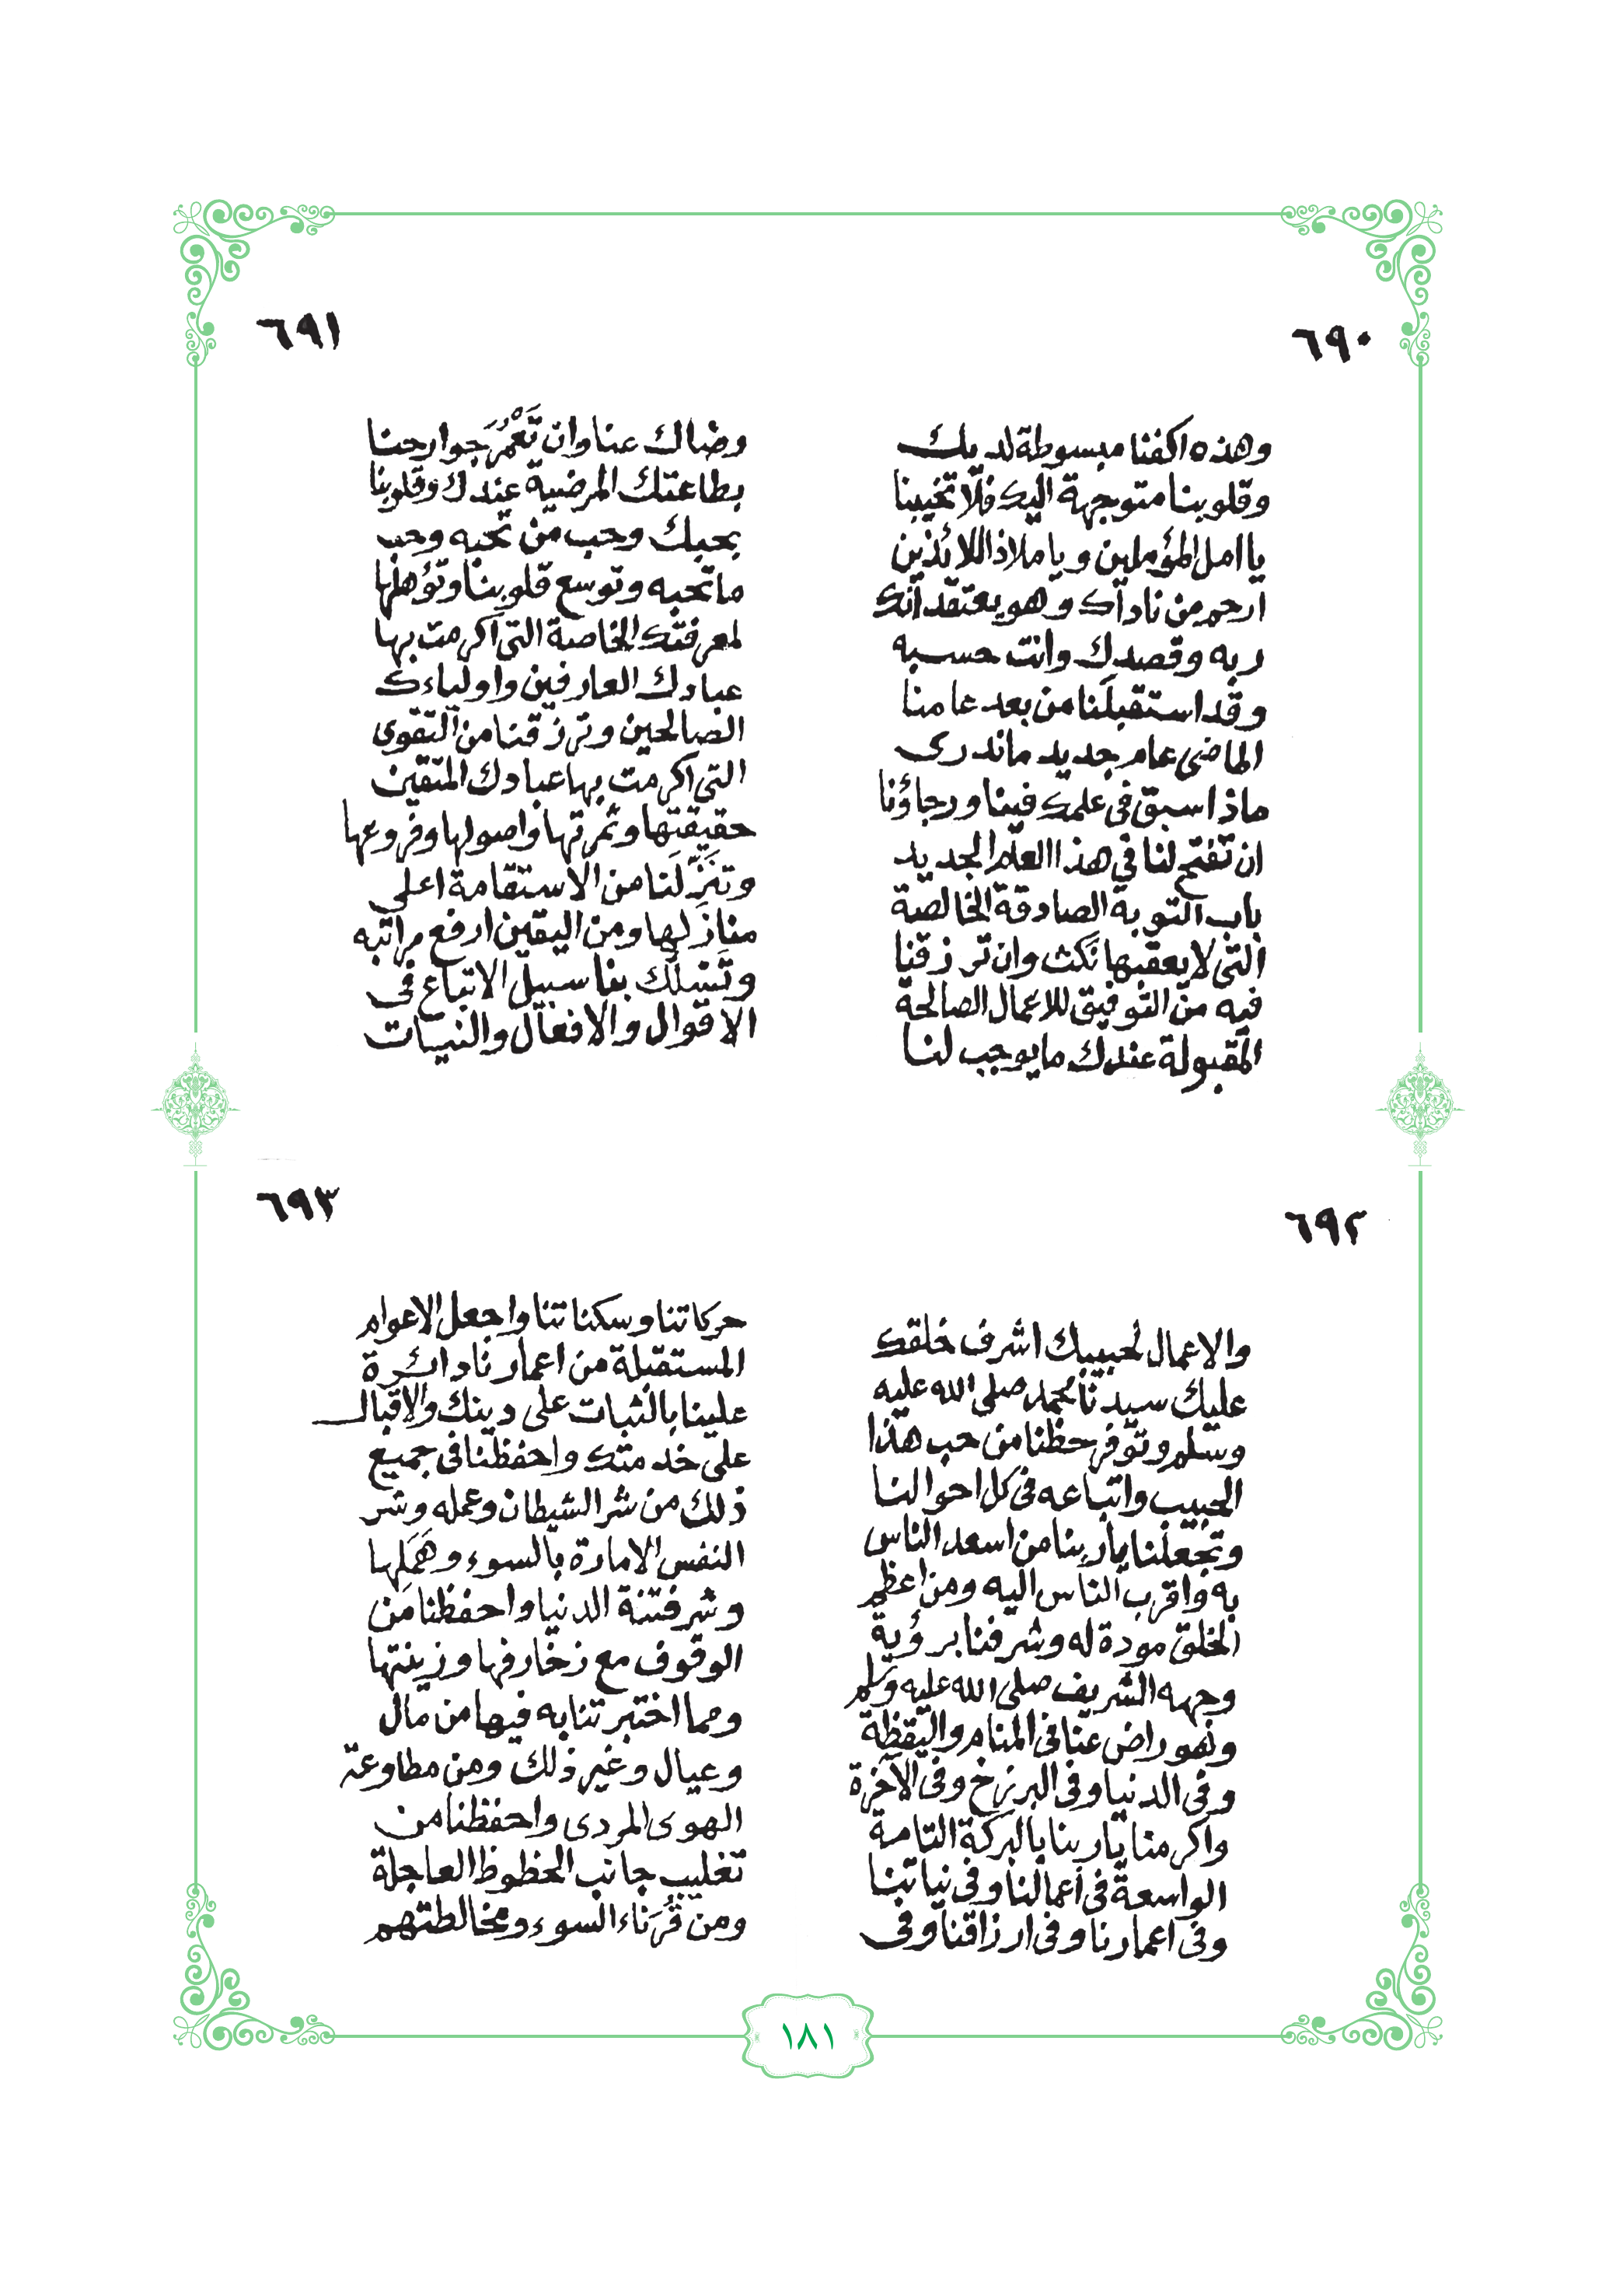 ٦٩٠
وهذه اكفنا مبسوطة لديك
وقلوبنا متوجهة اليك فلا تخيبنا
يا امل المؤملين ويا ملاذ اللائذين
ارحم من ناداك وهو يعتقد انك
ربه وقصدك وانت حسبه
وقد استقبلنا من بعد عامنا
الماضى عام جديد ماندرى
ماذا سبق فى علمك فينا ورجاؤنا
ان تفتح لنا في هذا العام الجديد
باب التوبة الصادقة الخالصة
التى لا يعقبها نكث وان ترزقنا
فيه من التوفيق للاعمال الصالحة
المقبولة عندك مايوجب لنا
٦٩١
رضاك عنا وان تَعْمُرَ جوارحنا
بطاعتك المرضية عندك وقلوبنا
بحبك وحب من تحبه وحب
ما تحبه وتوسع قلوبنا وتؤهلها
لمعرفتك الخاصة التى اكرمت بها
عبادك العارفين واولياءك
الصالحين وترزقنا من التقوى
التى اكرمت بها عبادك المتقين
حقيقتها وثمرتها واصولها وفروعها
وتَنَزَّلَنا من الاستقامة اعلى
منازلها ومن اليقين ارفع مراتبه
وتَسْلُك بنا سبيل الاتباع فى
الاقوال والافعال والنيات
٦٩٢
والاعمال لحبيبك اشرف خلقك
عليك سيدنا محمد صلى الله عليه
وسلم وتوفر حظنا من حب هذا
الحبيب واتباعه فى كل احوالنا
وتجعلنا ياربنا من اسعد الناس
به واقرب الناس اليه ومن اعظم
الخلق مودة له وشرفنا برؤية
وجهه الشريف صلى الله عليه وسلم
وهو راض عنا فى المنام واليقظة
وفى الدنيا وفى البرزخ وفى الآخرة
واكرمنا ياربنا بالبركة التامة
الواسعة فى أعمالنا وفى نياتنا
وفى اعمارنا وفى ارزاقنا وفى
٦٩٣
حركاتنا وسكناتنا واجعل الاعوام
المستقبلة من اعمارنا دائرة
علينا بالثبات على دينك والاقبال
على خدمتك واحفظنا فى جميع
ذلك من شر الشيطان وعمله وشر
النفس الامارة بالسوء وهَمَلِها
وشر فتنة الدنيا واحفظنا من
الوقوف مع زخارفها وزينتها
ومما اختبرتنا به فيها من مال
وعيال وغير ذلك ومن مطاوعة
الهوى المردى واحفظنا من
تغليب جانب الحظوظ العاجلة
ومن قُرَناء السوء ومخالطتهم
١٨١